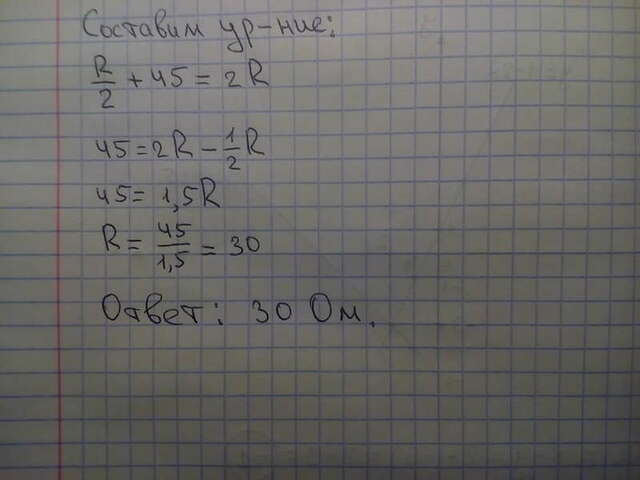 Составим ур-ние:
R/2 + 45 = 2R
45 = 2R - 1/2 R
45 = 1,5R
R = 45/1,5 = 30
Ответ: 30 Ом.